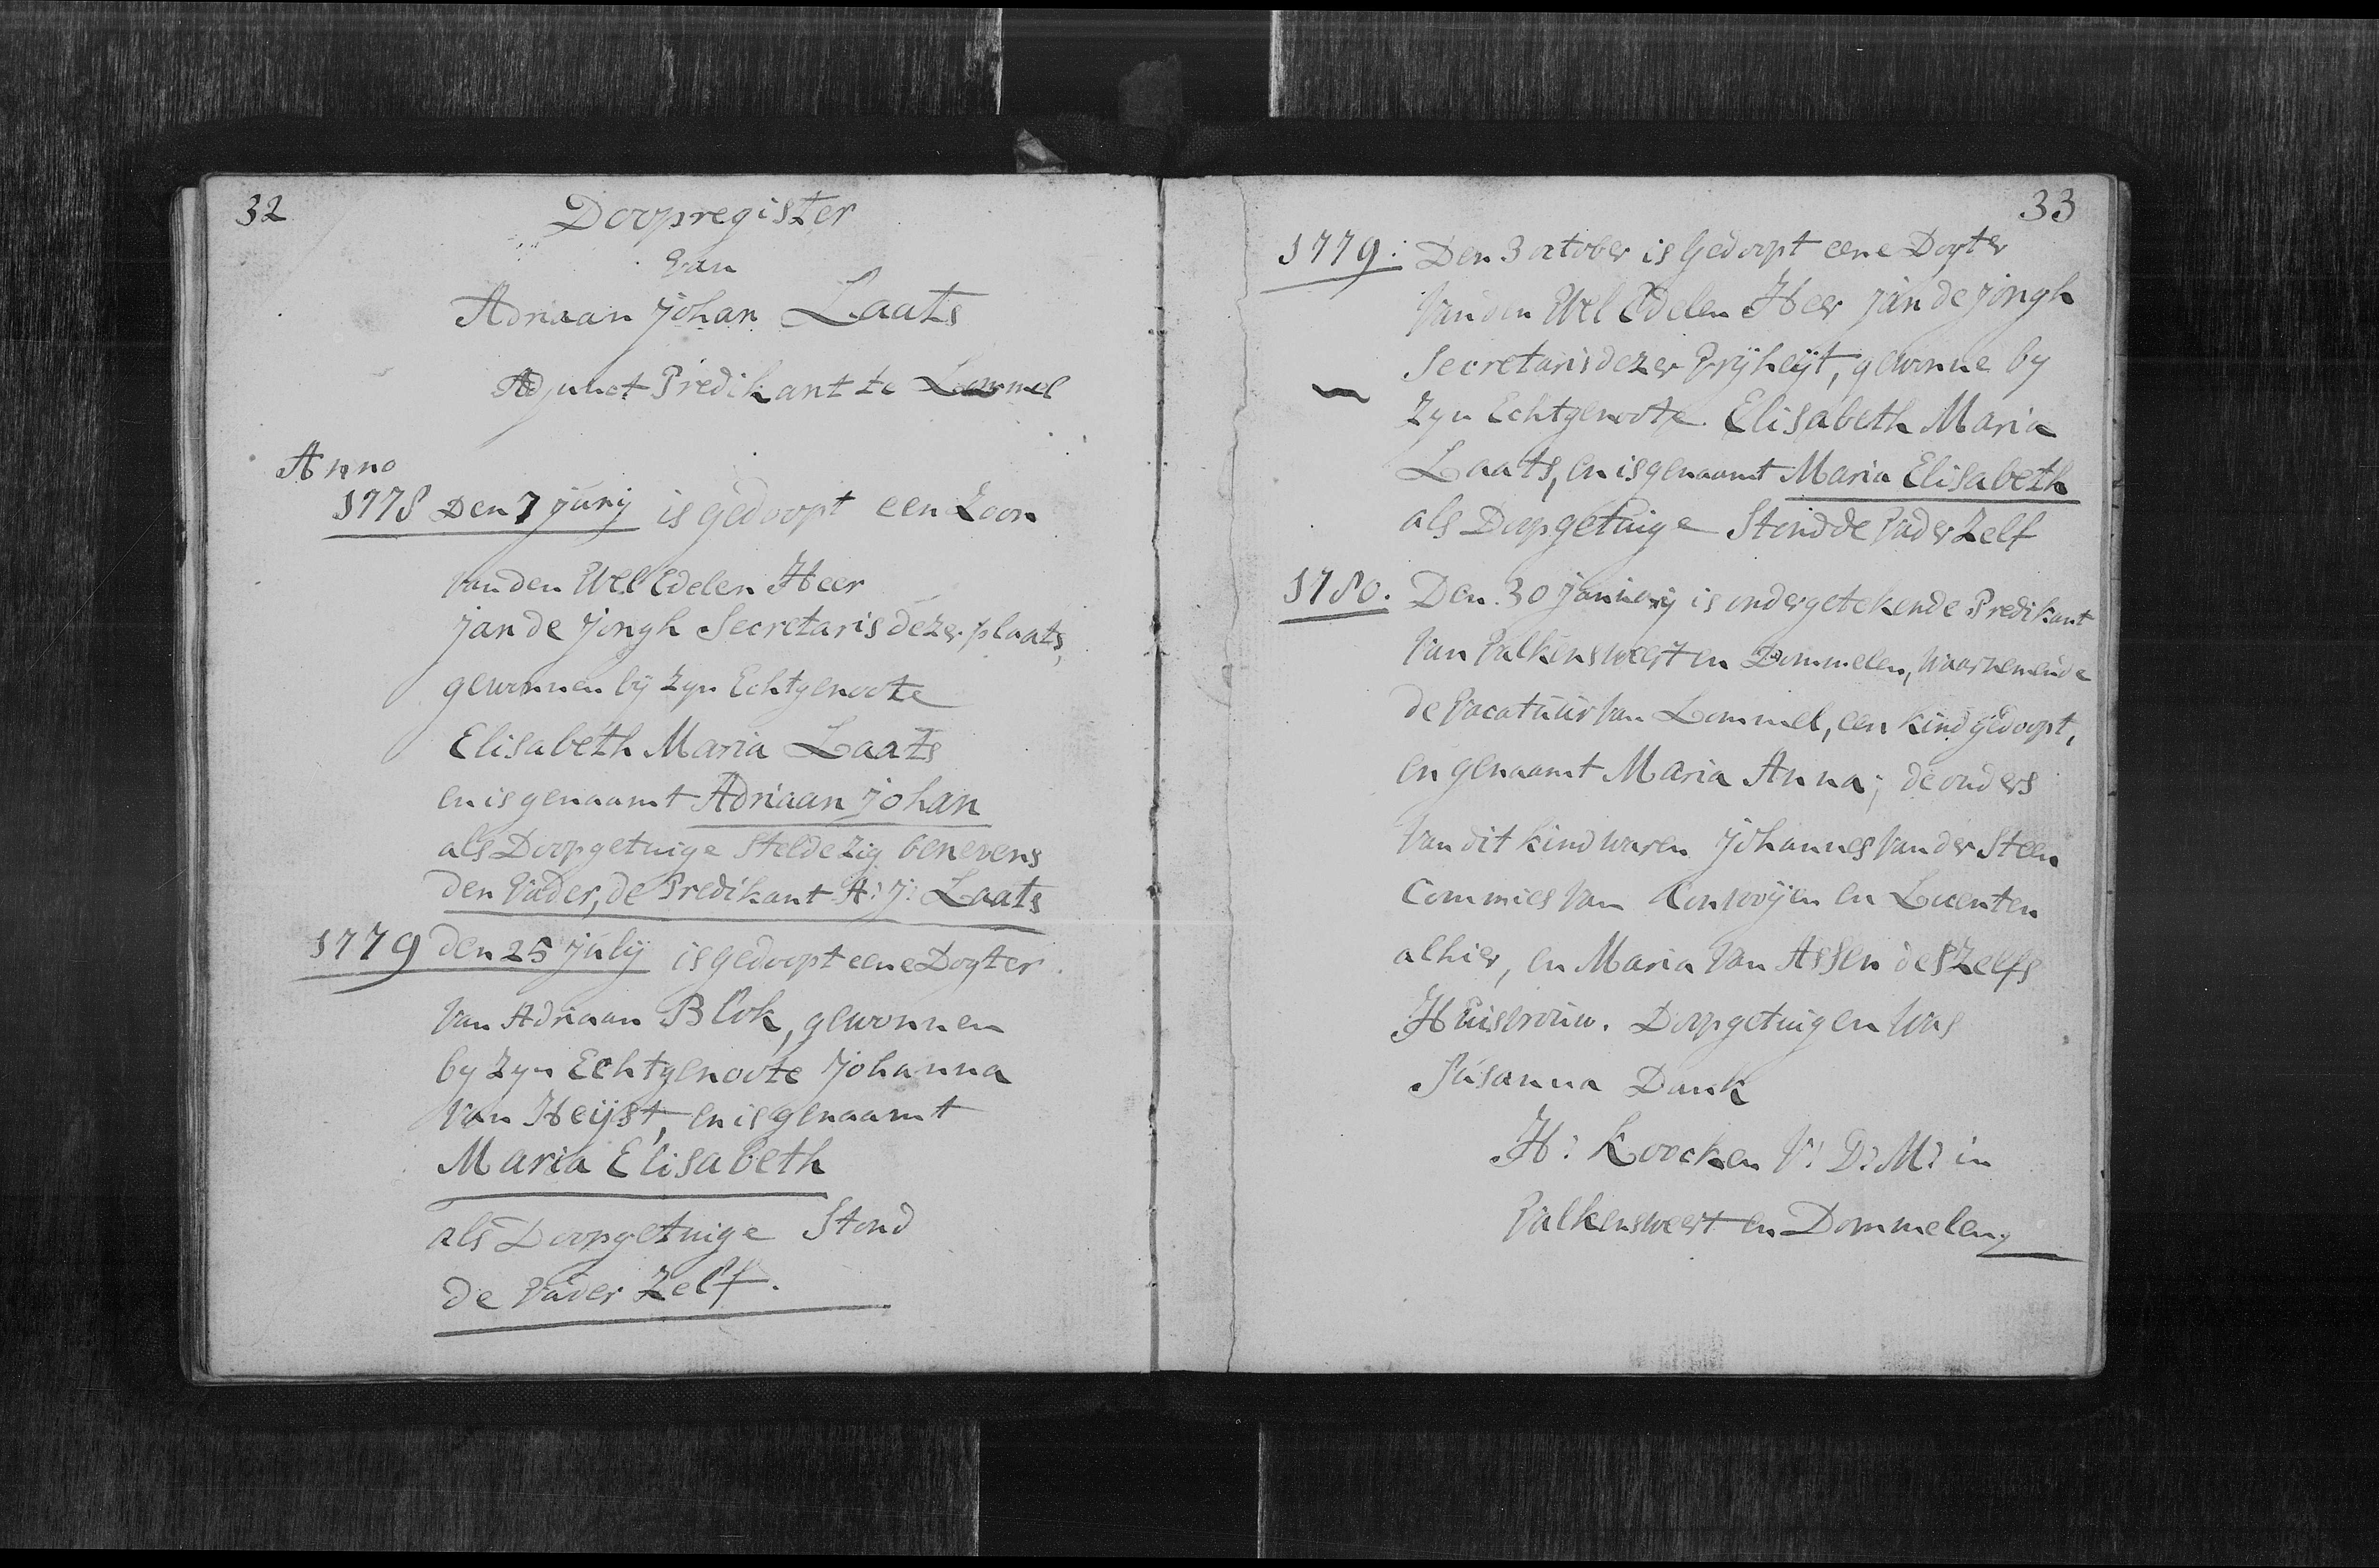 32
Doopregister
van
Adriaan Johan Laats
Adjunct Predikant te Lommel
Anno
1778 Den 7 Junij is gedoopt een Zoon
van den Wel Edelen Heer
Jan de Jongh Secretaris dezer plaats,
gewonnen bij zyn Echtgenoote
Elisabeth Maria Laats
en is genaamt Adriaan Johan
als Doopgetuige stelde zig benevens
den Vader, de Predikant A: J: Laats
1779 den 25 Julij is gedoopt eene Dogter
van Adriaan Blok, gewonnen
by zyn Echtgenoote Johanna
van Heijst, en is genaamt
Maria Elisabeth
als Doopgetuige Stond
de Vader Zelf.
33
1779: Den 3 october is Gedoopt eene Dogter
van den Wel Edelen Heer Jan de Jongh
Secretaris dezer Vrijheijt, gewonne by
zyn Echtgenoote Elisabeth Maria
Laats, en is genaamt Maria Elisabeth
als Doopgetuige Stond de Vader Zelf
1780. Den 30 Januarij is ondergetekende Predikant
van Valkensweert en Dommelen, waarnemende
de Vacatuur van Lommel, een kind gedoopt,
en genaamt Maria Anna; de ouders
van dit kind waren Johannes van der Steen
Commies van Convoijen en Licenten
alhier, en Maria van Assen deszelfs
Huisvrouw. Doopgetuigen was
Susanna Dank
H: Koocken V: D: M: in
Valkensweert en Dommelen